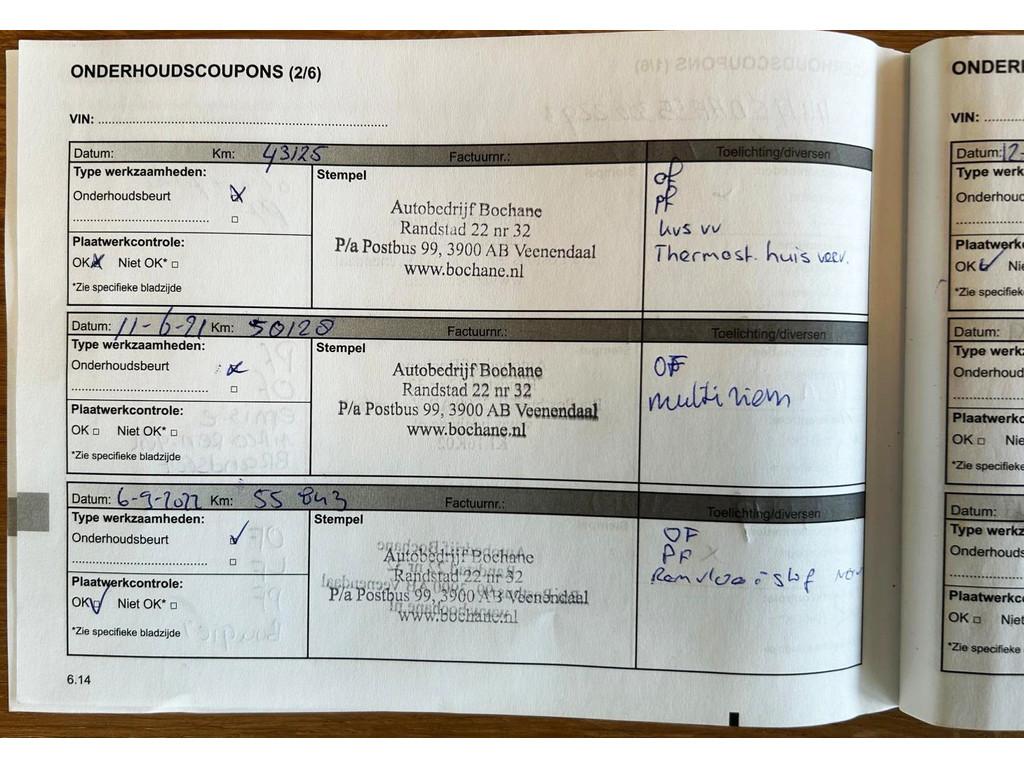 ONDERHOUDSCOUPONS (2/6)
VIN:
Datum: Km: 43125 Factuurnr.: Toelichting/diversen
Type werkzaamheden:
Onderhoudsbeurt
Plaatwerkcontrole:
OK Niet OK*
*Zie specifieke bladzijde
Stempel
Autobedrijf Bochane
Randstad 22 nr 32
P/a Postbus 99, 3900 AB Veenendaal
www.bochane.nl
OF
PF
kvs vv
Thermost. huis verv.
Datum: 11-6-21 Km: 50128 Factuurnr.: Toelichting/diversen
Type werkzaamheden:
Onderhoudsbeurt
Plaatwerkcontrole:
OK Niet OK*
*Zie specifieke bladzijde
Stempel
Autobedrijf Bochane
Randstad 22 nr 32
P/a Postbus 99, 3900 AB Veenendaal
www.bochane.nl
OF
multiriem
Datum: 6-9-2022 Km: 55 843 Factuurnr.: Toelichting/diversen
Type werkzaamheden:
Onderhoudsbeurt
Plaatwerkcontrole:
OK Niet OK*
*Zie specifieke bladzijde
Stempel
Autobedrijf Bochane
Randstad 22 nr 32
P/a Postbus 99, 3900 AB Veenendaal
www.bochane.nl
OF
PF
Remvloeistof
6.14
ONDER
VIN:
Datum: 12-
Type werk
Onderhoud
Plaatwerkc
OK Nie
*Zie specifieke
Datum:
Type werk
Onderhoud
Plaatwerkc
OK Nie
*Zie specifieke
Datum:
Type werk
Onderhouds
Plaatwerkc
OK Niet
*Zie specifieke